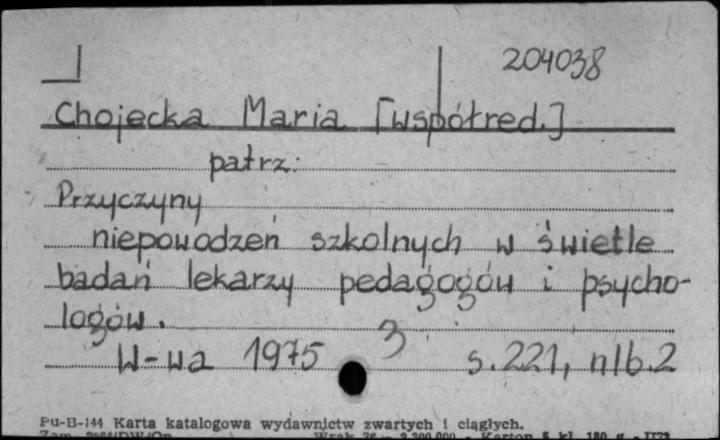 204038
Chojecka Maria [współred.]
patrz:
Przyczyny
niepowodzeń szkolnych w świetle
badań lekarzy pedagogów i psycho-
logów.
W-wa 1975 3 s. 221, nlb. 2
Pu-B-144 Karta katalogowa wydawnictw zwartych i ciągłych.
Karton